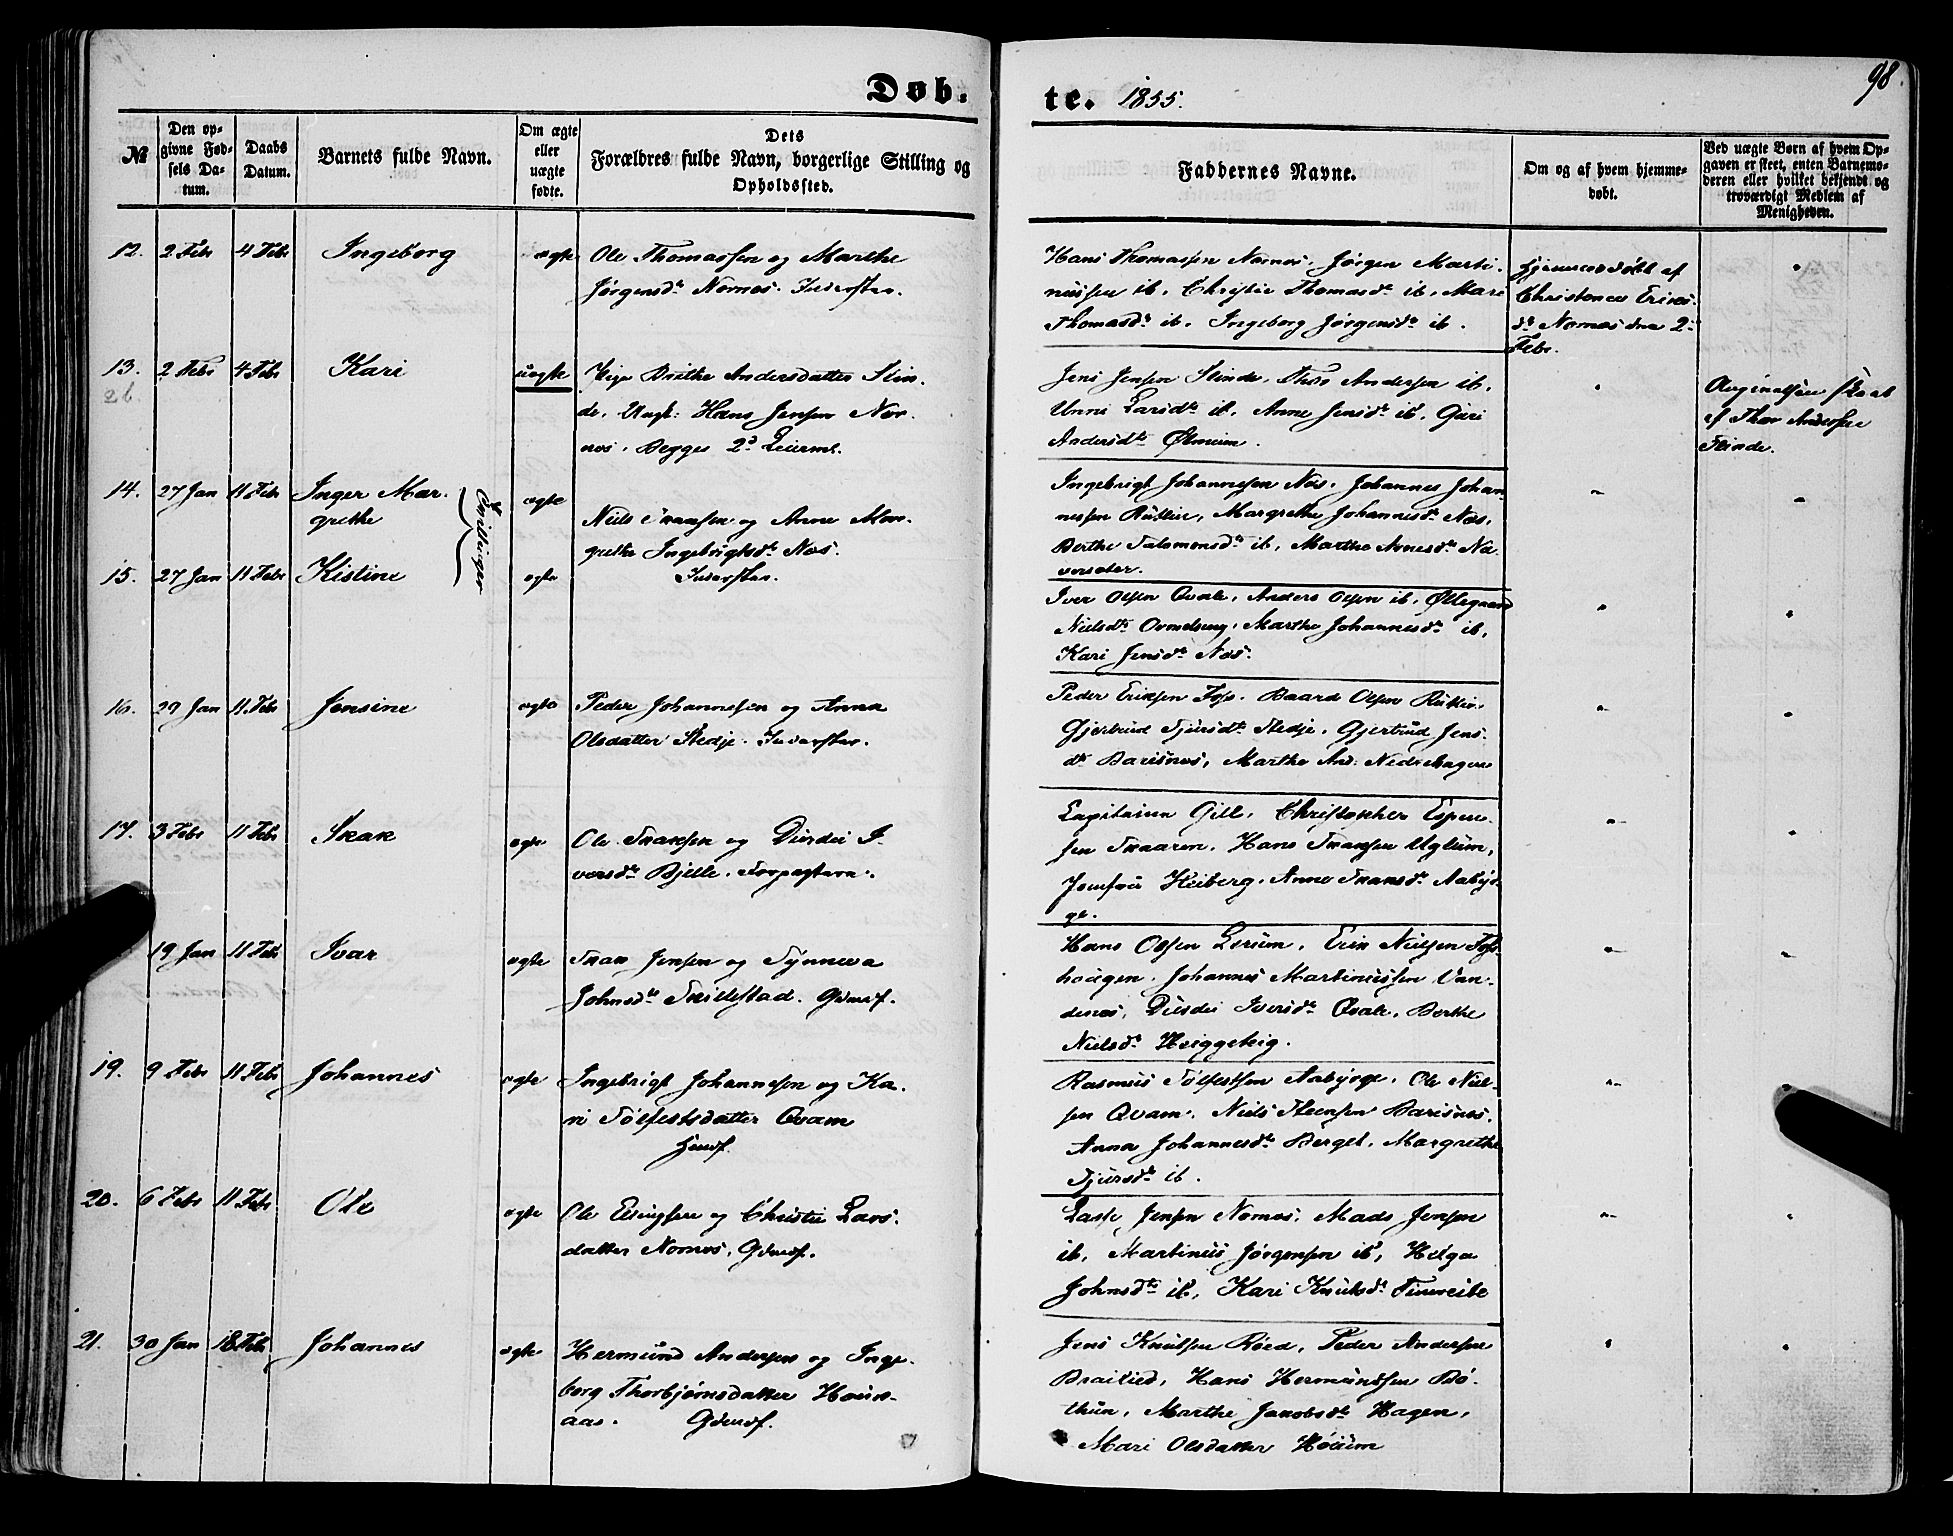 98.
Døb-
te. 1855.
№
Den op-
givne Fød-
sels Da-
tum.
Daabs
Datum.
Barnets fulde Navn.
Om ægte
eller
uægte
fødte.
Dets
Forældres fulde Navn, borgerlige Stilling og
Opholdssted.
Faddernes Navne.
Om og af hvem hjemme-
døbt.
Ved uægte Børn af hvem Op-
gaven er skeet, enten Barnemo-
deren eller hvilket bekjendt og
troværdigt Medlem af
Menigheden.
12. 2 Febr 4 Febr Ingeborg ægte
Ole Thomassen og Marthe
Jørgensdr Nornæs. Inderster.
Hans Thomassen Nornæs, Jørgen Marti-
nussen ib, Christie Thomasdr ib, Mari
Thomasdr ib. Ingeborg Jørgensdr ib.
Hjemmedøbt af
Christence Eriks-
dr Nornæs den 2
Febr.
13. 2 Febr 4 Febr Kari uægte
26.
Pige Brithe Andersdatter Slin-
de, Ungk: Hans Jensen Nor-
næs, Begges 2d Leierml.
Jens Jensen Slinde, Thor Andersen ib,
Unni Larsdtr ib, Anne Jensdr ib, Guri
Andersdtr Ølmeim.
Angivelsen skeet
af Thor Andersen
Slinde.
14. 27 Jan 11 Febr Inger Mar-
grethe ægte
Tvillinger
Niels Iversen og Anne Mar-
grethe Ingebrigtsdr Næs.
Inderster.
Ingebrigt Johannesen Næs, Johannes Johan-
nesen Rutlin, Margrethe Johannesdr Næs,
Berthe Salomonsdr ib, Marthe Arnesdr Na-
vorseter.
15. 27 Jan 11 Febr Kistine ægte
Iver Olsen Qvale, Anders Olsen ib, Øllegaard
Nielsdtr Ovrndseng, Marthe Johannesdr ib,
Kari Jensdr Næs.
16. 29 Jan 11 Febr Jensine ægte
Peder Johannesen og Anna
Olsdatter Stedje. Inderster.
Peder Eriksen Foss. Baard Olsen Rutlin,
Gjertrud Sjursdtr Stedje, Gjertrud Jens-
dtr Barsnæs, Marthe And: Nedrehagen
17. 3 Febr 11 Febr Skak ægte
Ole Skaksen og Durdei I-
versdr Bjelle. Forpagtere.
Capitain Gill, Christopher Espen-
sen Skaaren, Hans Skaksen Uglum,
Jomfru Heiberg, Anne Skaksdr Aabyr-
ge.
19 Jan 11 Febr Ivar ægte
Skak Jensen og Synneva
Johnsdtr Skildestad. Gdmdf.
Hans Olsen Lerum, Erik Nielsen Foss-
hougen, Johannes Martinussen Van-
denæs, Durdei Iversdtr Qvale, Berthe
Nielsdr Heiggeteig.
19. 9 Febr 11 Febr Johannes ægte
Ingebrigt Johannesen og Ka-
ri Sølfestsdatter Qvam
Husf.
Rasmus Sølfestsen Aabyrge, Ole Niel-
sen Qvam, Niels Steensen Barsnæs,
Anna Johannesdr Berget, Margrethe
Sjursdtr ib.
20. 6 Febr 11 Febr Ole ægte
Ole Ellingsen og Christie Lars-
datter Nornæs, Gdmdf.
Lasse Jensen Nornæs, Mads Jensen
ib, Martinus Jørgensen ib, Helga
Johnsdtr ib, Kari Knutsdr Fimreite
21. 30 Jan 18 Feb Johannes ægte
Hermund Andersen og Inge-
borg Thorbjørnsdatter Houk-
aas. Gdmdf.
Jens Knutsen Røed, Peder Andersen
Brailied, Hans Hermundsen Bø-
thun, Marthe Jakobsdr Hagen,
Mari Olsdatter Houum